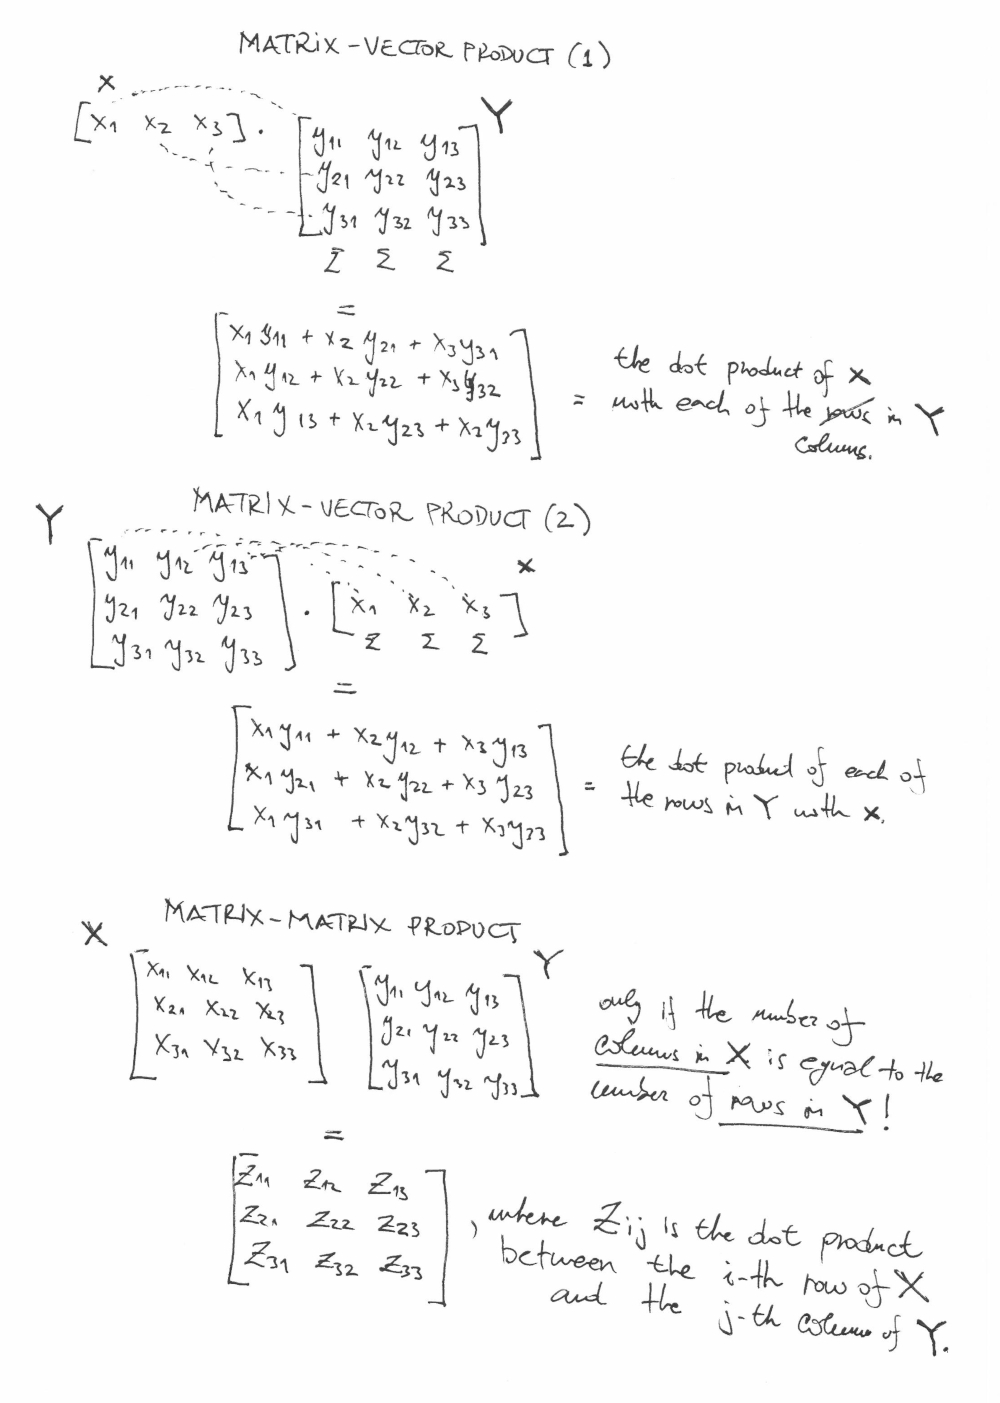 MATRIX-VECTOR PRODUCT (1)
x
[x1 x2 x3] · [y11 y12 y13 Y
y21 y22 y23
y31 y32 y33]
Σ Σ Σ
=
[x1 y11 + x2 y21 + x3 y31
x1 y12 + x2 y22 + x3 y32
x1 y13 + x2 y23 + x2 y33]
= the dot product of x
with each of the rows in Y
columns.
MATRIX-VECTOR PRODUCT (2)
Y
[y11 y12 y13
y21 y22 y23
y31 y32 y33] · [x1 x2 x3] x
Σ Σ Σ
=
[x1 y11 + x2 y12 + x3 y13
x1 y21 + x2 y22 + x3 y23
x1 y31 + x2 y32 + x3 y33]
= the dot product of each of
the rows in Y with x.
MATRIX-MATRIX PRODUCT
X
[x11 x12 x13
x21 x22 x23
x31 x32 x33]
[y11 y12 y13 Y
y21 y22 y23
y31 y32 y33]
only if the number of
columns in X is equal to the
number of rows in Y!
=
[z11 z12 z13
z21 z22 z23
z31 z32 z33]
, where Zij is the dot product
between the i-th row of X
and the j-th column of Y.